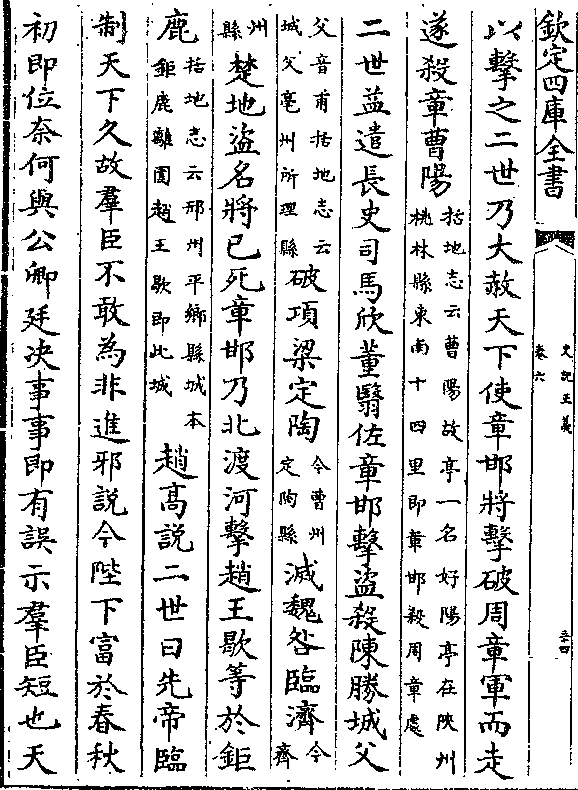 欽定四庫全書
史記正義
卷六
三四
以擊之二世乃大赦天下使章邯將擊破周章軍而走
遂殺章曹陽括地志云曹陽故亭一名好陽亭在陝州桃林縣東南十四里即章邯殺周章處
二世益遣長史司馬欣董翳佐章邯擊盜殺陳勝城父
父音甫括地志云城父亳州所理縣破項梁定陶今曹州定陶縣滅魏咎臨濟今齊
州縣楚地盜名將已死章邯乃北渡河擊趙王歇等於鉅
鹿括地志云邢州平鄉縣城本鉅鹿離圍趙王歇即此城趙高說二世曰先帝臨
制天下久故羣臣不敢為非進邪說今陛下富於春秋
初即位奈何與公卿廷決事事即有誤示羣臣短也天